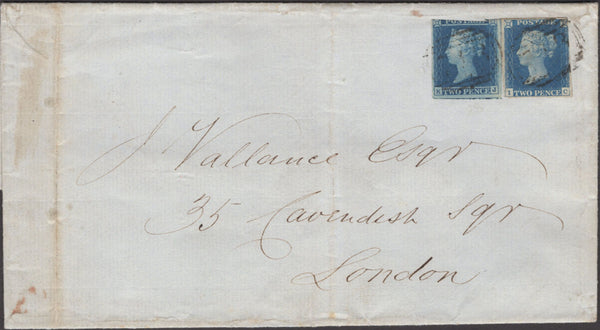 POSTAGE POSTAGE
K J TWO PENCE I C TWO PENCE
J Vallance Esqr
35 Cavendish Sqr
London